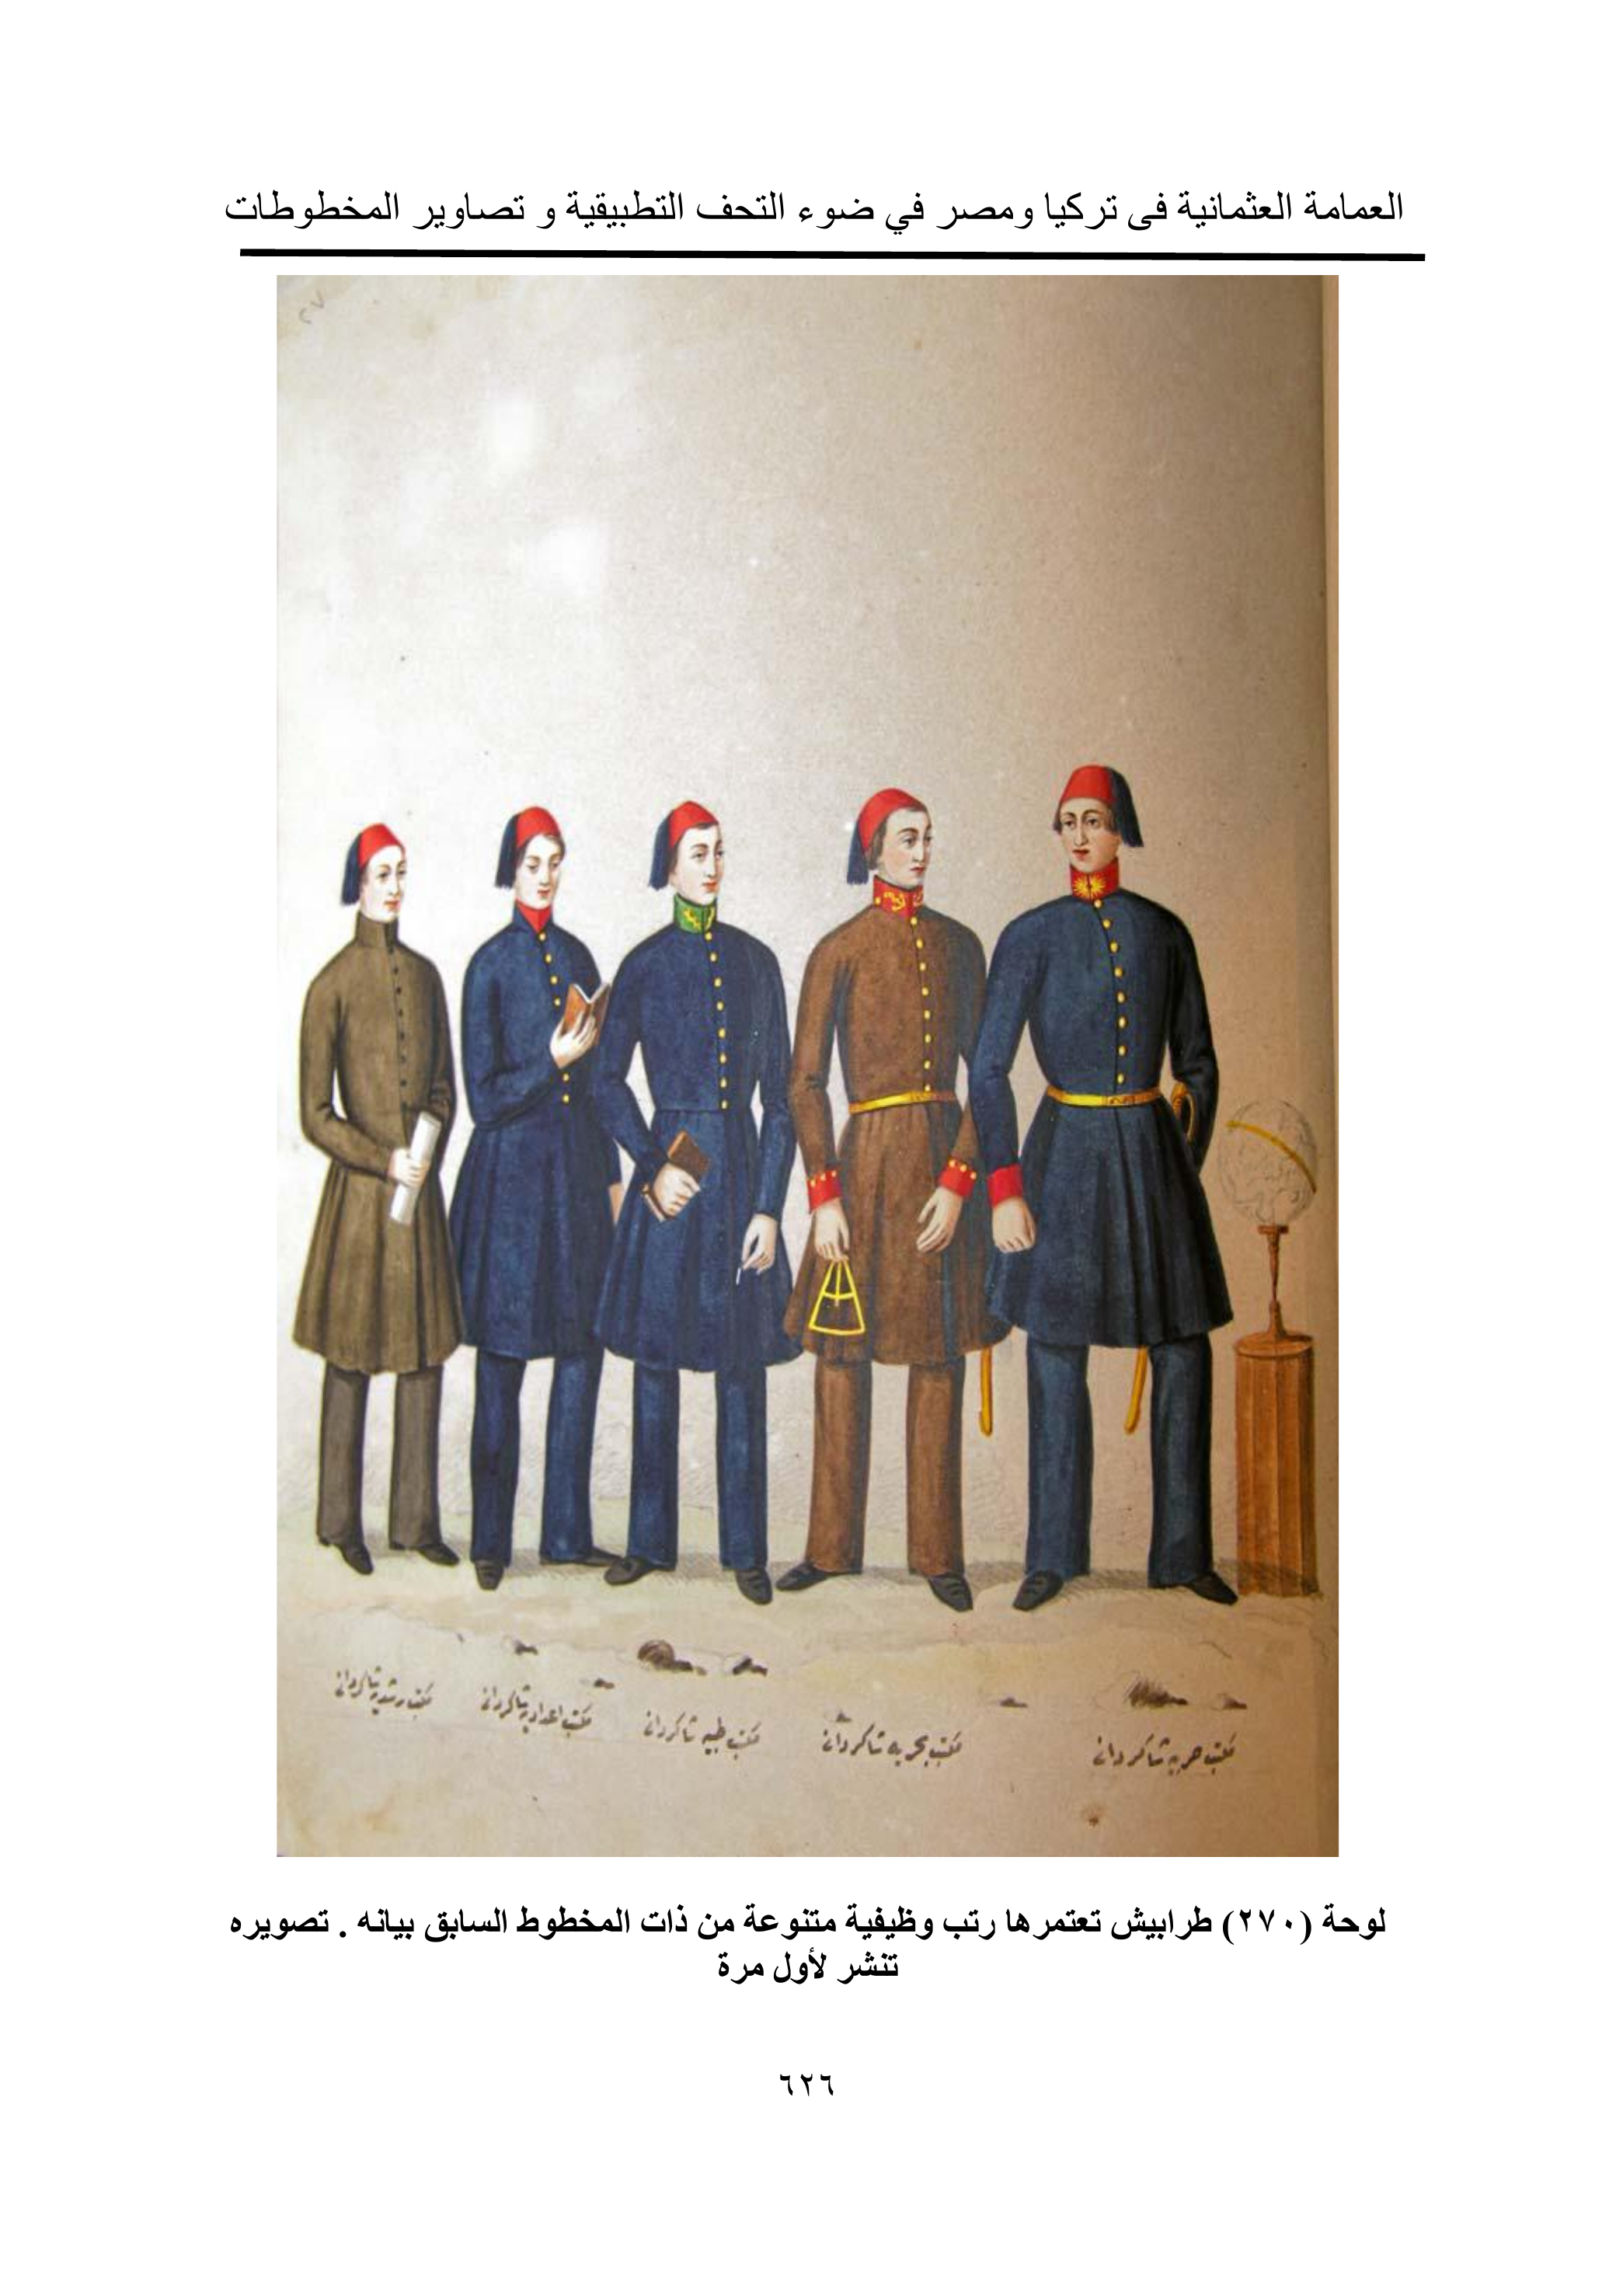 العمامة العثمانية فى تركيا ومصر في ضوء التحف التطبيقية و تصاوير المخطوطات
٢٧
مكتب حربيه شاكردانى
مكتب بحريه شاكردانى
مكتب طبيه شاكردانى
مكتب اعداديه شاكردانى
مكتب رشديه شاكردانى
لوحة (٢٧٠) طرابيش تعتمرها رتب وظيفية متنوعة من ذات المخطوط السابق بيانه . تصويره
تنشر لأول مرة
٦٢٦